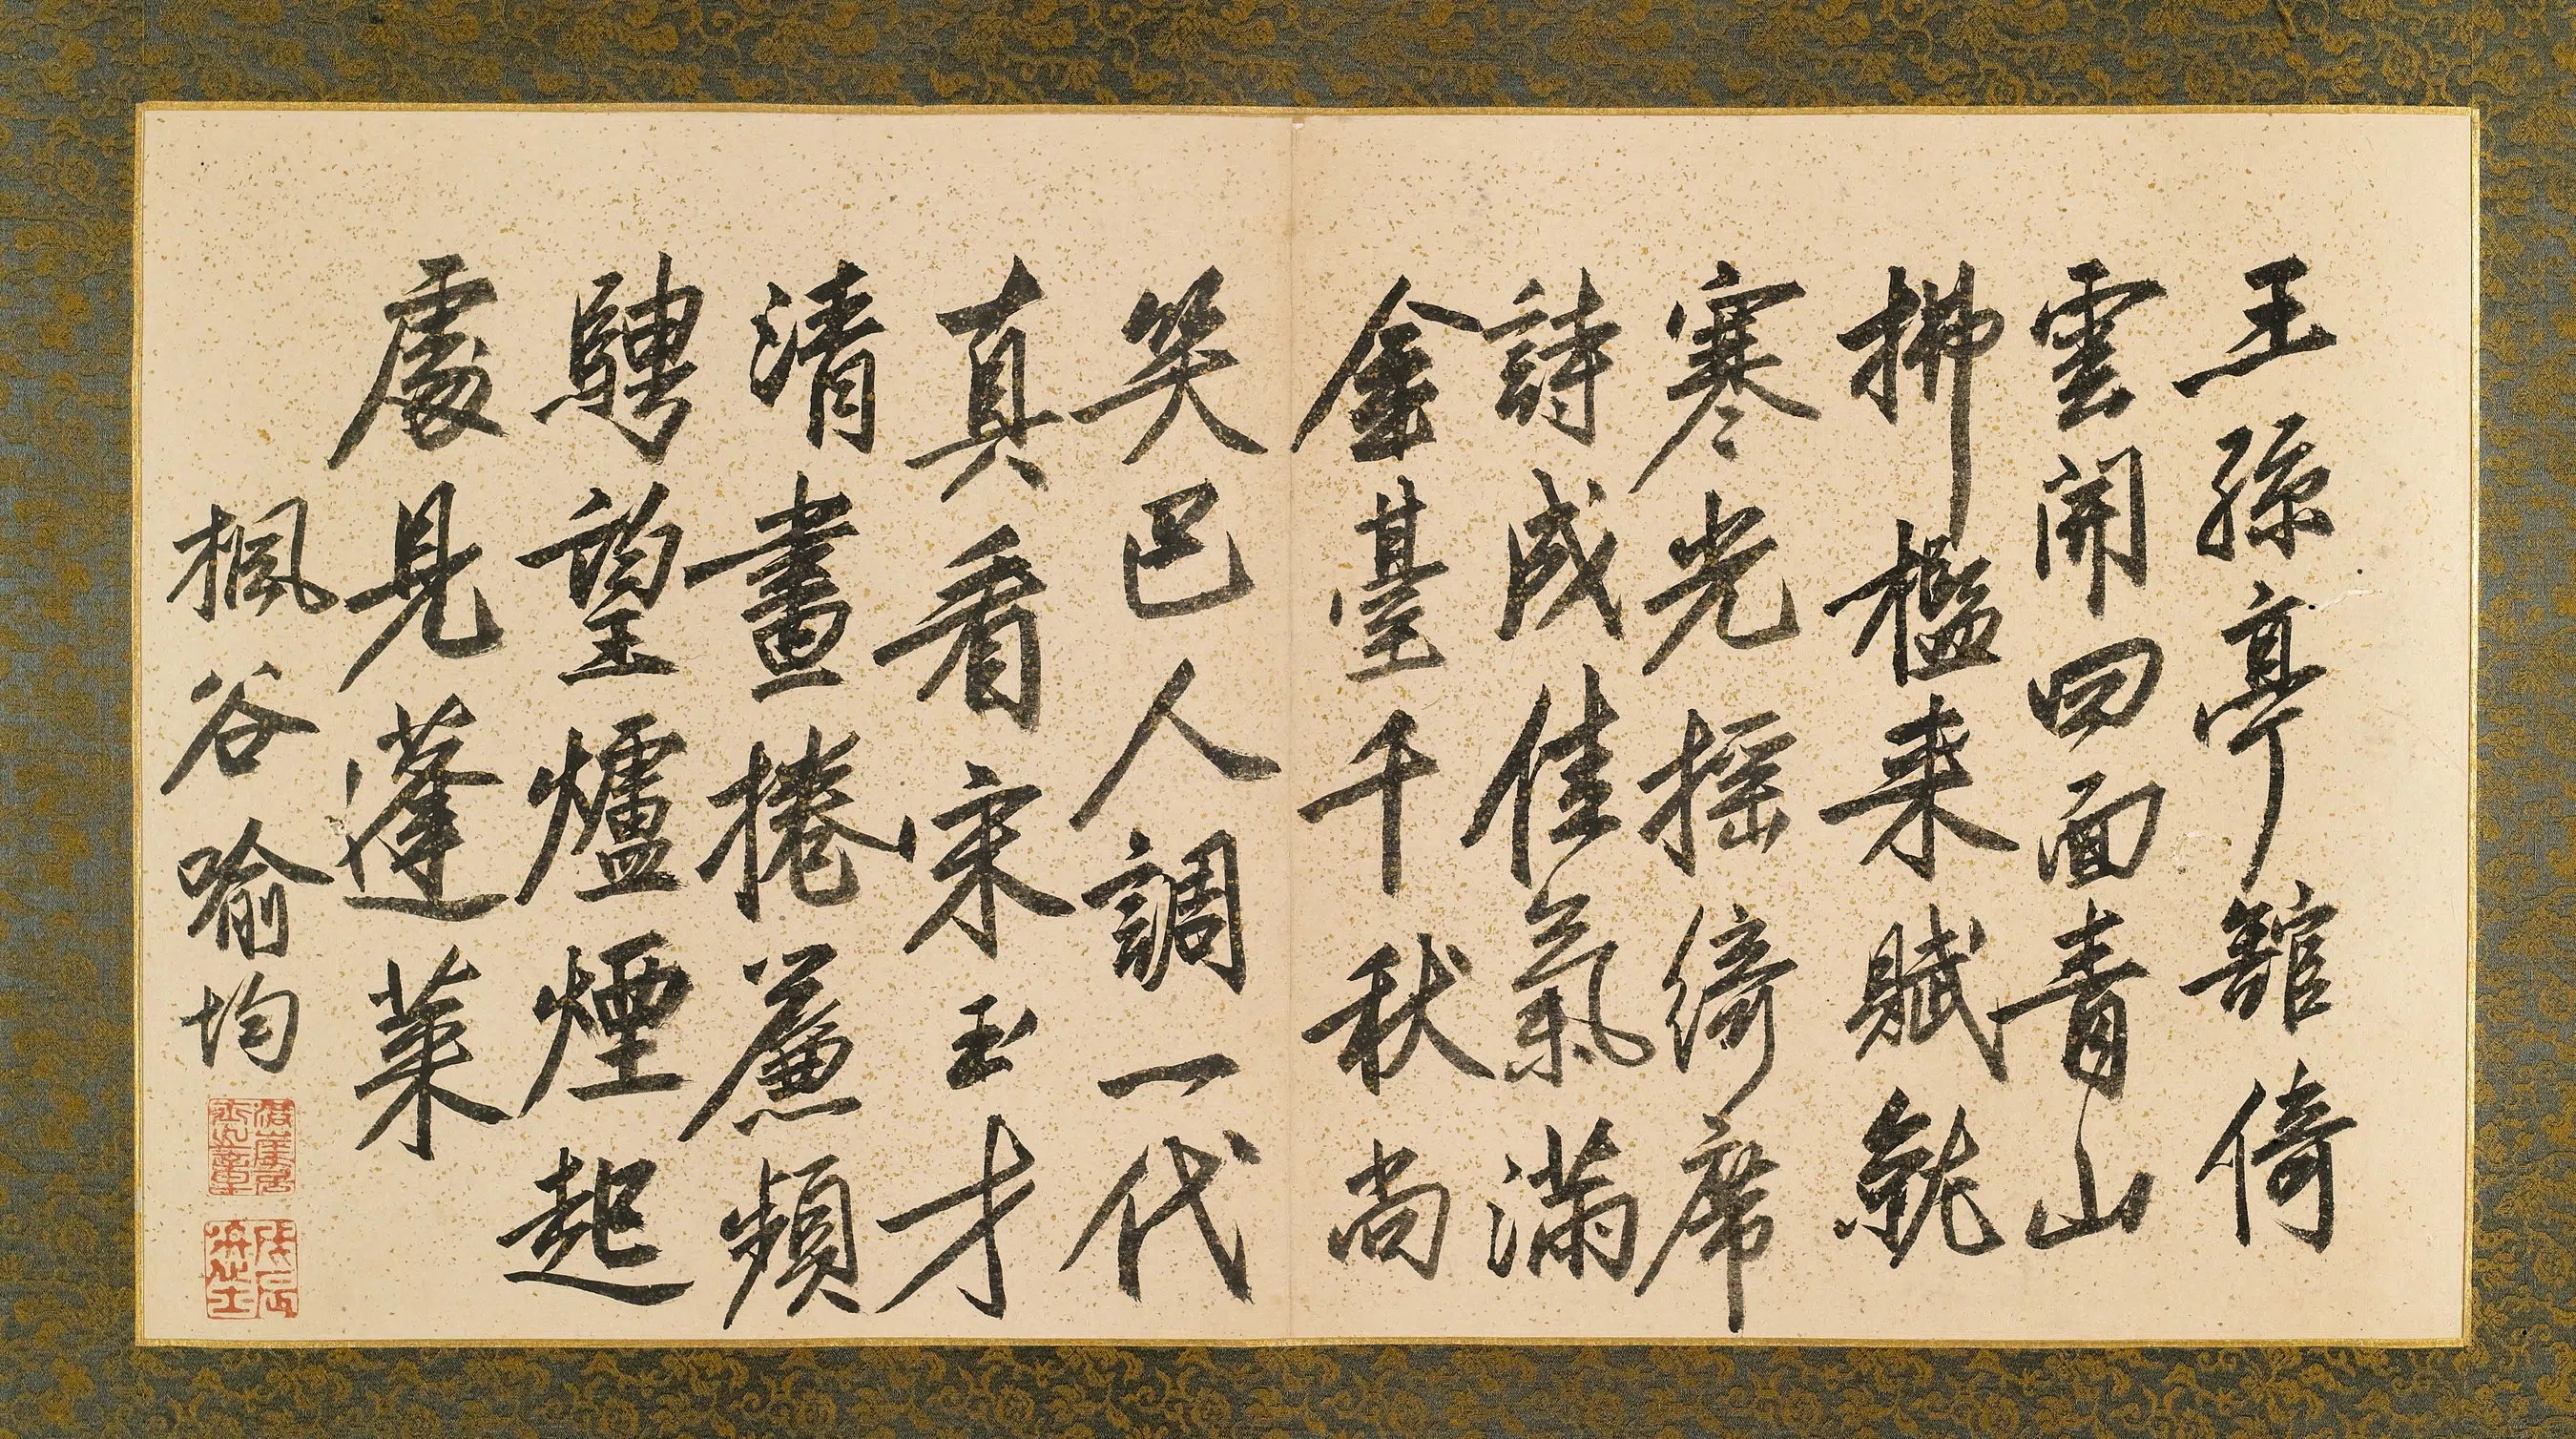 王孫亭館倚
雲開回面青山
拂檻来賦就
寒光搖綺席
詩成佳氣滿
金臺千秋尚
笑巴人調一代
真看宋玉才
清晝捲簾頻
騁望爐煙起
處見蓬萊
楓谷喻均